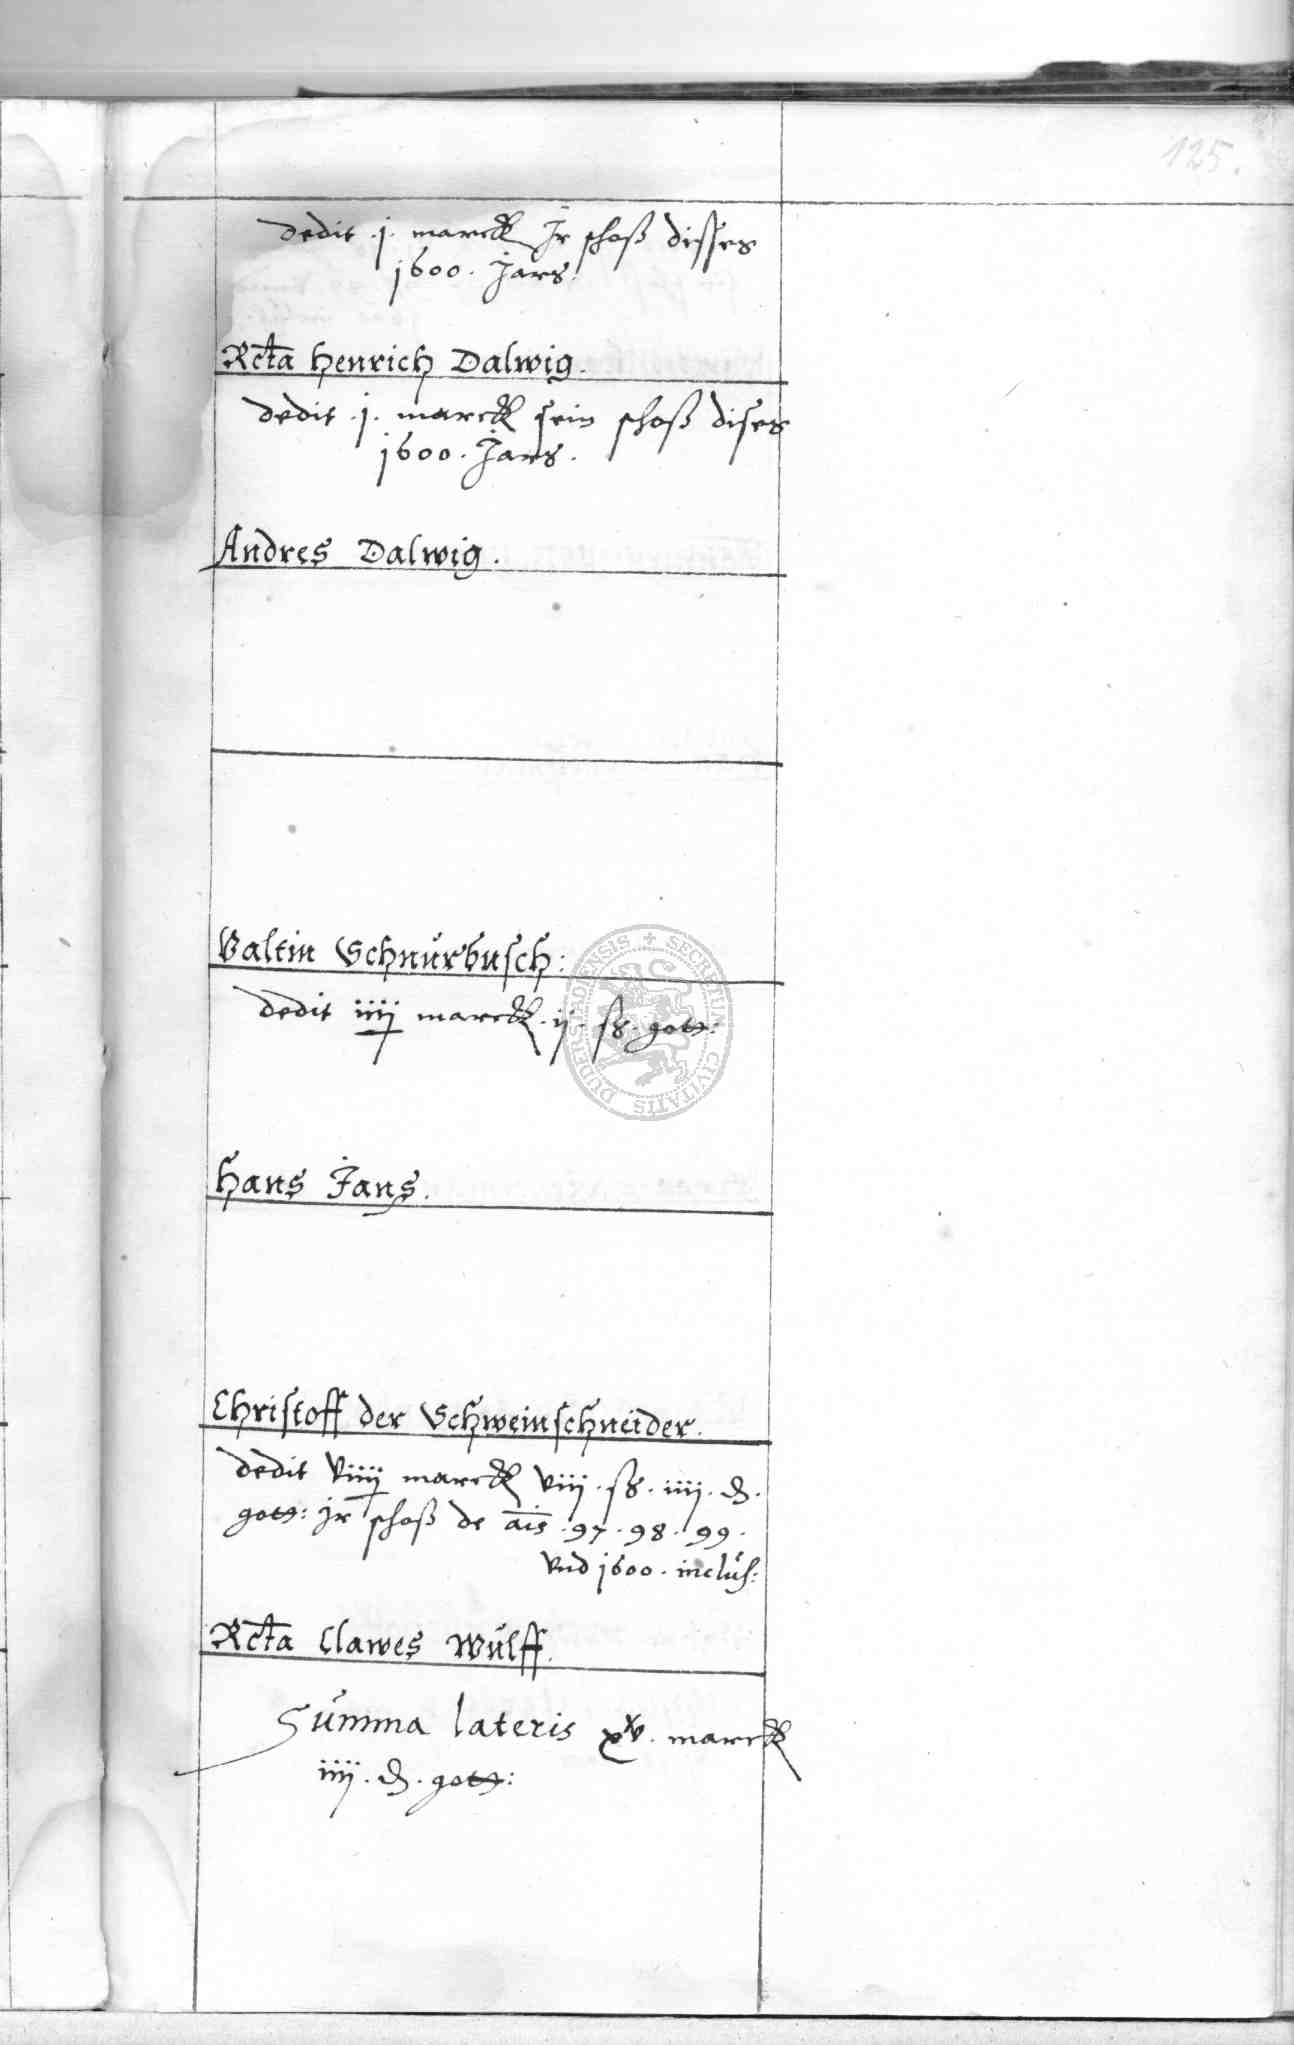 125.
dedit .j. marck Jr schoß disses
1600. Jars.
Rcta Henrich Dalwig.
dedit .j. marck sein schoß dises
1600. Jars.
Andres Dalwig.
Valtin Schnürbusch:
dedit iiij marck. ij. ß. gott:
Hans Jans.
Christoff der Schweinschneider.
dedit viiij marck viij. ß. iiij. d.
gott: Jr schoß de ais .97.98.99.
vnd 1600. inclus:
Rcta Clawes Wulff.
Summa lateris xv. marck
iiij. d. gott:
SECRETUM CIVITATIS DUDERSTADIENSIS